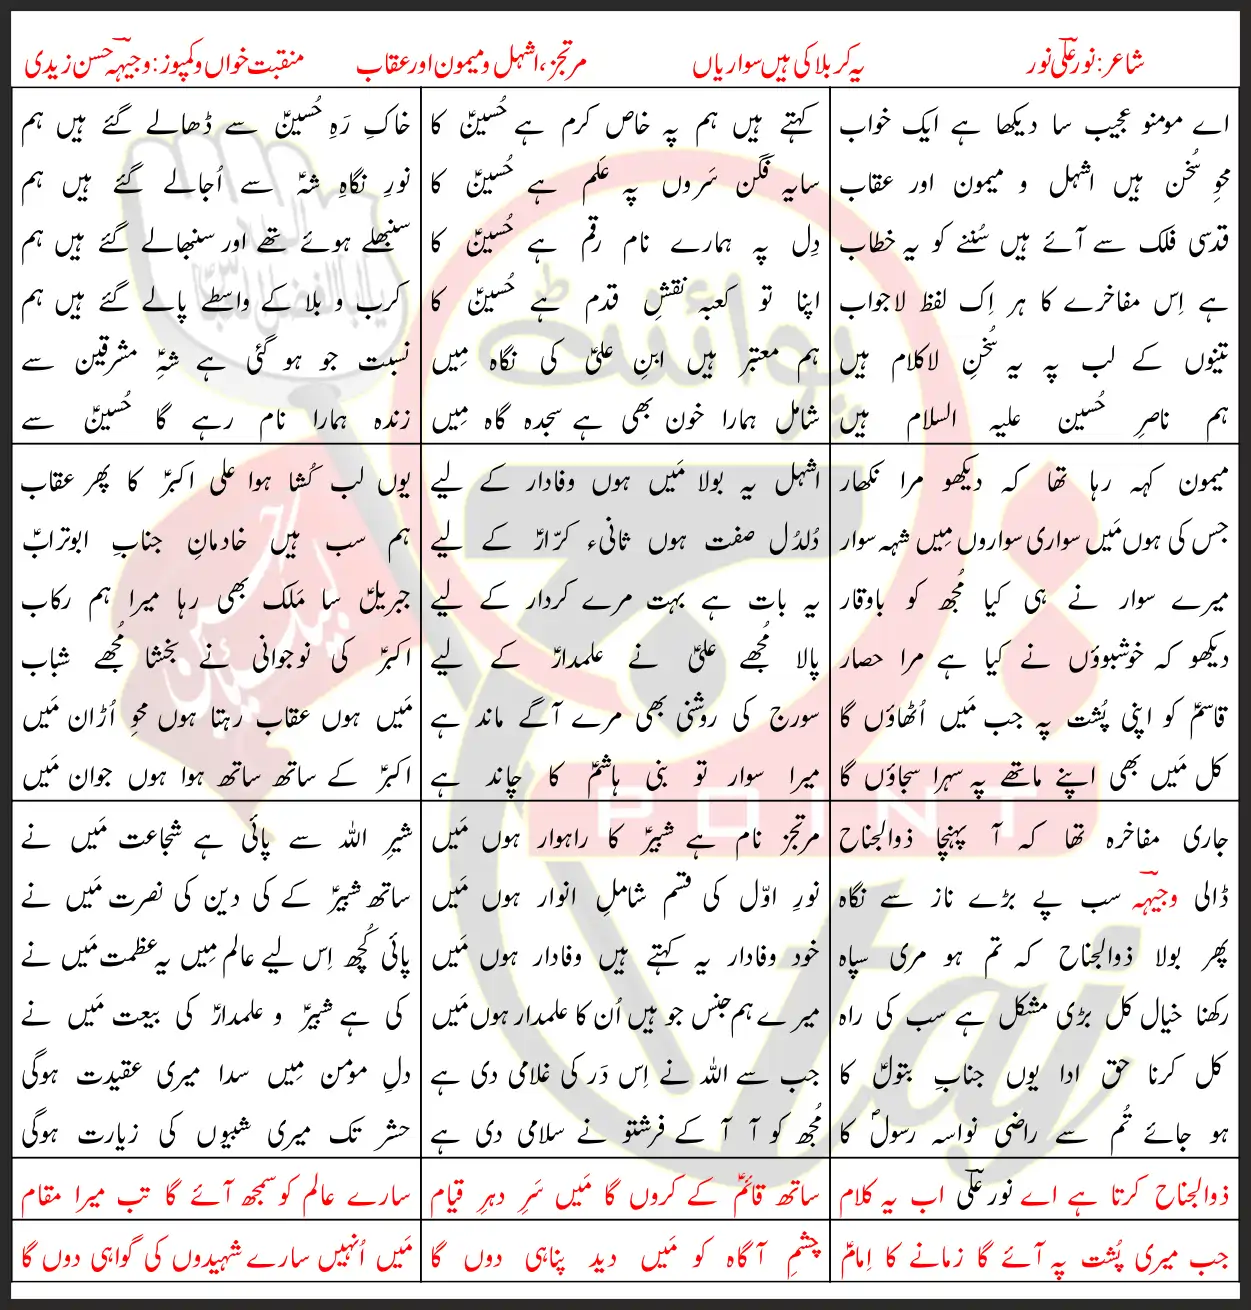 شاعر: نور علی نور
یہ کربلا کی ہیں سواریاں
مرتجز، اشہل و میمون اور عقاب
منقبت خواں و کمپوز: وجیہہ حسن زیدی
اے مومنو عجیب سا دیکھا ہے ایک خواب
محوِ سُخن ہیں اشہل و میمون اور عقاب
قدسی فلک سے آئے ہیں سُننے کو یہ خطاب
ہے اِس مفاخرے کا ہر اِک لفظ لاجواب
تینوں کے لب پہ یہ سُخنِ لاکلام ہیں
ہم ناصرِ حُسین علیہ السلام ہیں
کہتے ہیں ہم پہ خاص کرم ہے حُسینؑ کا
سایہ فگن سَروں پہ عَلم ہے حُسینؑ کا
دِل پہ ہمارے نام رقم ہے حُسینؑ کا
اپنا تو کعبہ نقشِ قدم ہے حُسینؑ کا
ہم معتبر ہیں ابنِ علیؑ کی نگاہ مِیں
شامل ہمارا خون بھی ہے سجدہ گاہ مِیں
خاکِ رَہِ حُسینؑ سے ڈھالے گئے ہیں ہم
نورِ نگاہِ شہؑ سے اُجالے گئے ہیں ہم
سنبھلے ہوئے تھے اور سنبھالے گئے ہیں ہم
کرب و بلا کے واسطے پالے گئے ہیں ہم
نسبت جو ہو گئی ہے شہِؑ مشرقین سے
زندہ ہمارا نام رہے گا حُسینؑ سے
میمون کہہ رہا تھا کہ دیکھو مرا نکھار
جس کی ہوں مَیں سواری سواروں مِیں شہہ سوار
میرے سوار نے ہی کیا مُجھ کو باوقار
دیکھو کہ خوشبوؤں نے کیا ہے مرا حصار
قاسمؑ کو اپنی پُشت پہ جب مَیں اُٹھاؤں گا
کل مَیں بھی اپنے ماتھے پہ سہرا سجاؤں گا
اشہل یہ بولا مَیں ہوں وفادار کے لیے
دُلدُل صفت ہوں ثانیء کرّارؑ کے لیے
یہ بات ہے بہت مرے کردار کے لیے
پالا مُجھے علیؑ نے علمدارؑ کے لیے
سورج کی روشنی بھی مرے آگے ماند ہے
میرا سوار تو بنی ہاشمؑ کا چاند ہے
یوں لب کُشا ہوا علی اکبرؑ کا پھر عقاب
ہم سب ہیں خادمانِ جنابِ ابوترابؑ
جبریلؑ سا مَلک بھی رہا میرا ہم رکاب
اکبرؑ کی نوجوانی نے بخشا مُجھے شباب
مَیں ہوں عقاب رہتا ہوں محوِ اُڑان مَیں
اکبرؑ کے ساتھ ساتھ ہوا ہوں جوان مَیں
جاری مفاخرہ تھا کہ آ پہنچا ذوالجناح
ڈالی وجیہہ سب پے بڑے ناز سے نگاہ
پھر بولا ذوالجناح کہ تم ہو مری سپاہ
رکھنا خیال کل بڑی مشکل ہے سب کی راہ
کل کرنا حق ادا یوں جنابِ بتولؑ کا
ہو جائے تُم سے راضی نواسہ رسولؐ کا
مرتجز نام ہے شبیرؑ کا راہوار ہوں مَیں
نورِ اوّل کی قسم شاملِ انوار ہوں مَیں
خود وفادار یہ کہتے ہیں وفادار ہوں مَیں
میرے ہم جنس جو ہیں اُن کا علمدار ہوں مَیں
جب سے اللہ نے اِس دَر کی غلامی دی ہے
مُجھ کو آ آ کے فرشتو نے سلامی دی ہے
شیرِ اللہ سے پائی ہے شجاعت مَیں نے
ساتھ شبیرؑ کے کی دین کی نصرت مَیں نے
پائی کُچھ اِس لیے عالم مِیں یہ عظمت مَیں نے
کی ہے شبیرؑ و علمدارؑ کی بیعت مَیں نے
دلِ مومن مِیں سدا میری عقیدت ہوگی
حشر تک میری شبیوں کی زیارت ہوگی
ذوالجناح کرتا ہے اے نور علی اب یہ کلام
ساتھ قائمؑ کے کروں گا مَیں سَرِ دہرِ قیام
سارے عالم کو سمجھ آئے گا تب میرا مقام
جب میری پُشت پہ آئے گا زمانے کا اِمامؑ
چشمِ آگاہ کو مَیں دید پناہی دوں گا
مَیں اُنہیں سارے شہیدوں کی گواہی دوں گا
پوائنٹ
POINT
taj